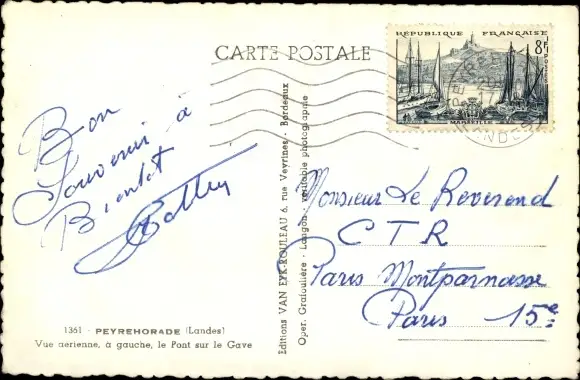 CARTE POSTALE
RÉPUBLIQUE FRANÇAISE
8F
MARSEILLE
LANDES
Bon
Souvenir à
Bientot
Monsieur Le Reverend
C T R
Paris Montparnasse
Paris 15e
Editions VAN EYK-ROULEAU 6, rue Veyrines - Bordeaux
Oper. Grafoulière - Langon - véritable photographie
1361 - PEYREHORADE (Landes)
Vue aerienne, à gauche, le Pont sur le Gave